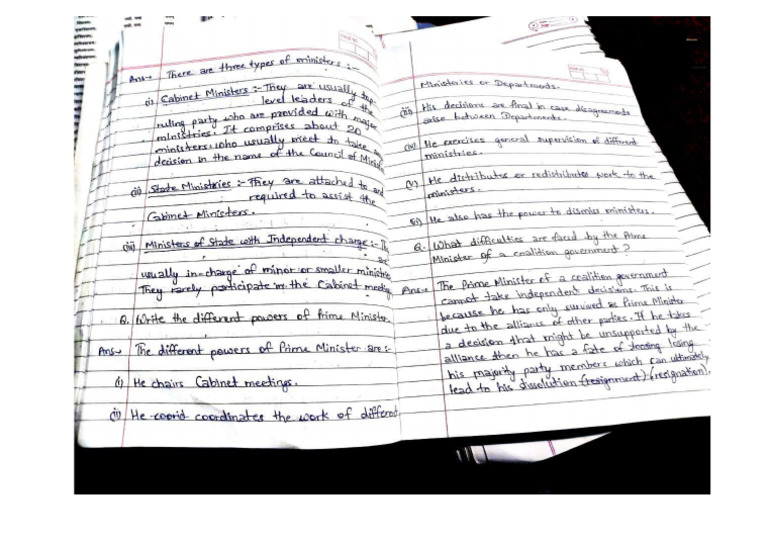 Ans→ There are three types of ministers :-
(i) Cabinet Ministers :- They are usually top-
level leaders of the
ruling party who are provided with major
ministries. It comprises about 20
ministers who usually meet to take
decision in the name of the Council of Minist
(ii) State Ministries :- They are attached to and
required to assist the
Cabinet Ministers.
(iii) Ministers of State with Independent charge :- Th
are
usually in-charge of minor or smaller ministries
They rarely participate in the Cabinet meeting
Q. Write the different powers of Prime Minister.
Ans→ The different powers of Prime Minister are :-
(i) He chairs Cabinet meetings.
(ii) He coorid coordinates the work of different
Ministries or Departments.
(iii) His decisions are final in case disagreements
arise between Departments.
(iv) He exercises general supervision of different
ministries.
(v) He distributes or redistributes work to the
ministers.
(vi) He also has the power to dismiss ministers.
Q. What difficulties are faced by the Prime
Minister of a coalition government?
Ans→ The Prime Minister of a coalition government
cannot take independent decisions. This is
because he has only survived as Prime Minister
due to the alliance of other parties. If he takes
a decision that might be unsupported by the
alliance then he has a fate of loosing losing
his majority party members which can ultimately
lead to his dissolution (resignment) (resignation).